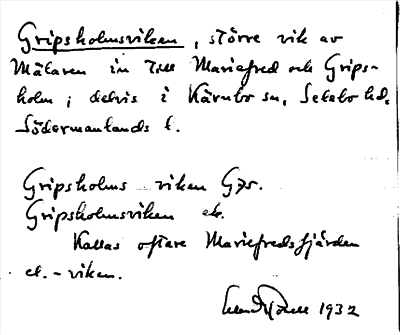 Gripsholmsviken, större vik av
Mälaren in till Mariefred och Grips-
holm; delvis i Kärnbo sn, Selebo hd,
Södermanlands l.
Gripsholms viken G75.
Gripsholmsviken ek.
Kallas oftare Mariefredsfjärden
el. -viken.
1932